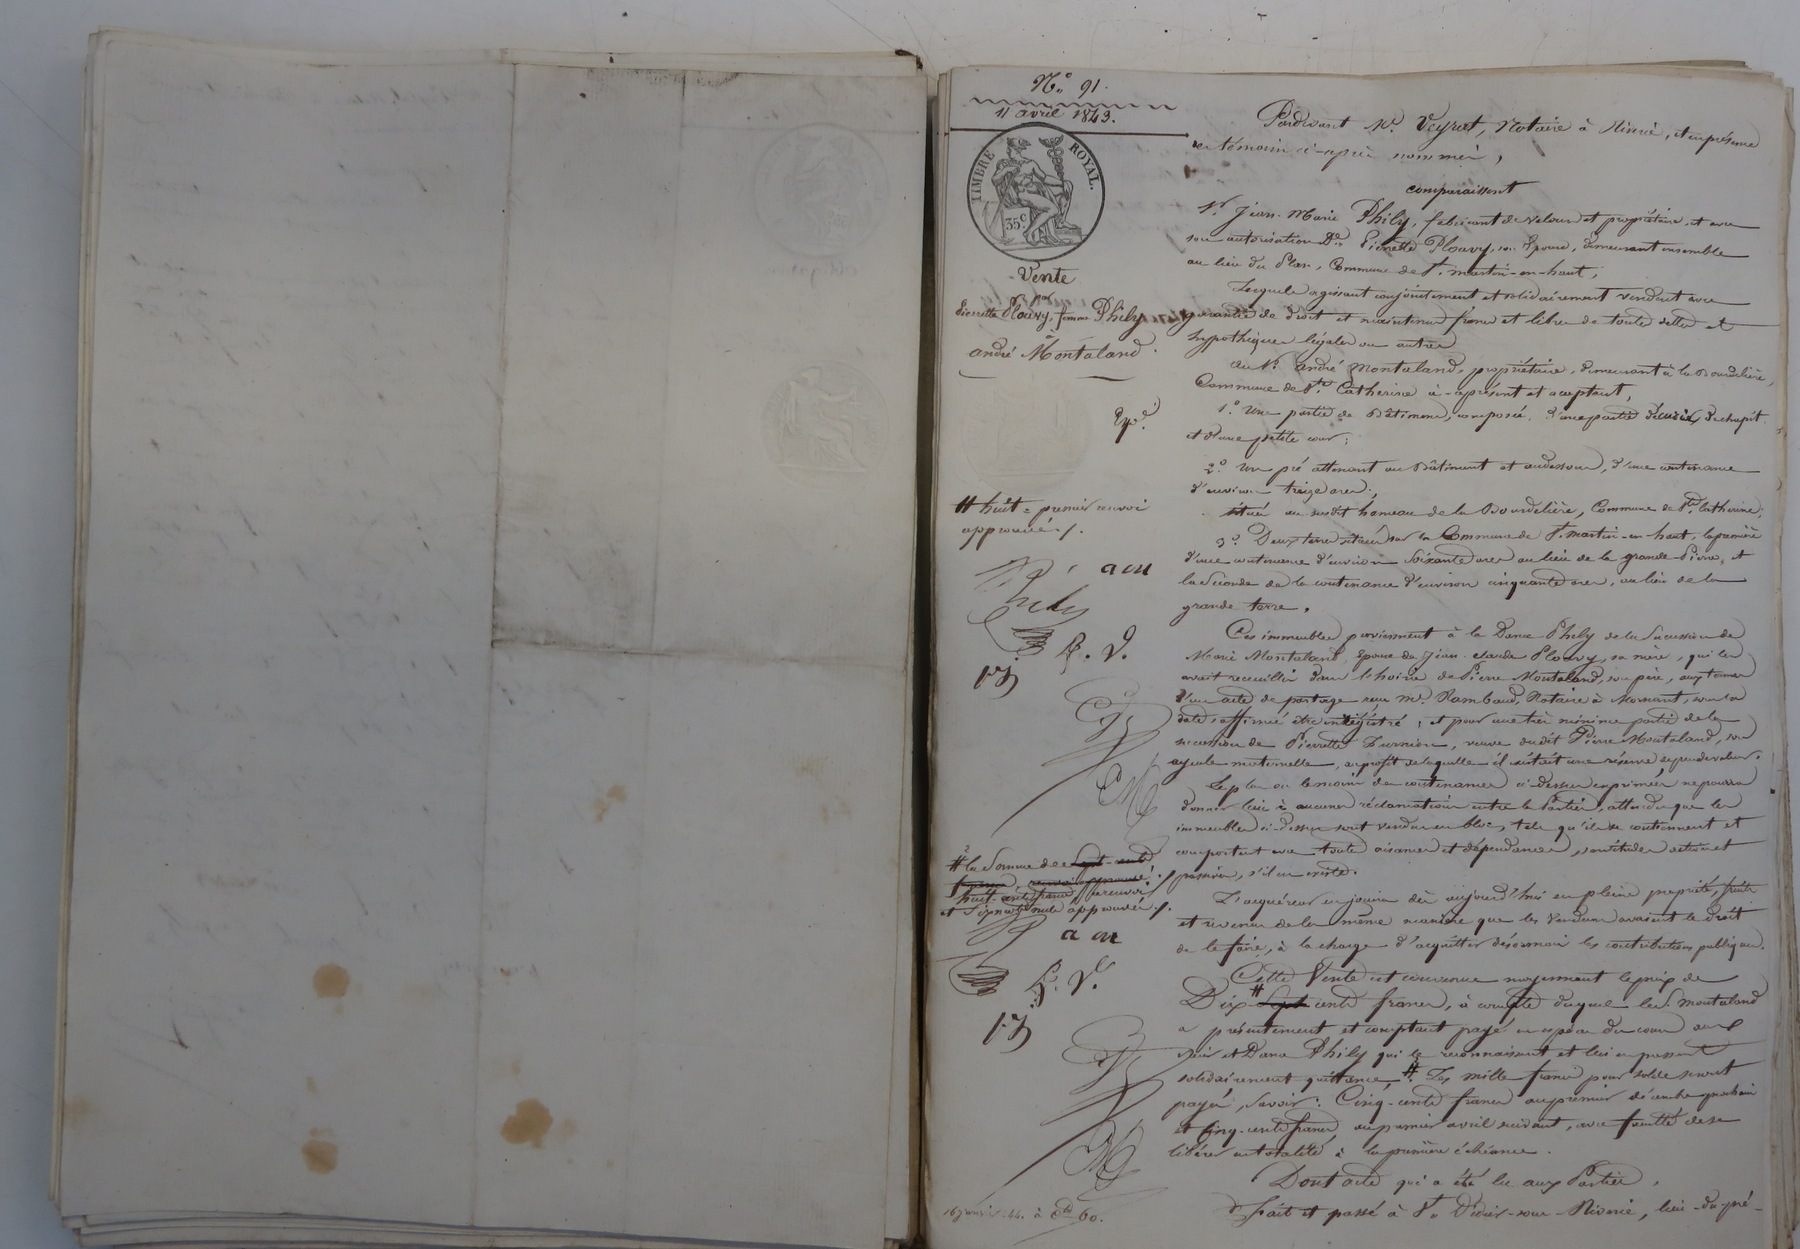 N° 91.
11 avril 1843.
TIMBRE ROYAL.
35 c
Vente
par
Pierrette Plouvy, femme Phily
à
andré Montaland.
Exp.é
# huit = premier renvoi
approuvé ./.
a m
Phily
P. V.
# la Somme de
huit-cents francs, renvoi
et nuls approuvés ./.
a m
P. V.
Pardevant Me. Veyrat, Notaire à Riverie, et en présence
des témoins ci-après nommés,
comparaissent
Sr. Jean-Marie Phily, fabricant de velours et propriétaire, et avec
son autorisation De. Pierrette Plouvy, son Epouse, demeurant ensemble
au lieu du Plan, Commune de St. martin-en-haut;
Lesquels agissant conjointement et solidairement vendent avec
garantie de droit et maintenue franc et libre de toutes dettes et
hypothèques légales ou autres
au Sr. andré Montaland, propriétaire, demeurant à la Bourdelière,
Commune de Ste. Catherine à-ce présent et acceptant,
1°. Une partie de Bâtiment, composée d'une partie d'écurie, de chapit
et d'une petite cour;
2°. Un pré attenant au Bâtiment et audessous, d'une contenance
d'environ treize ares;
situés au susdit hameau de la Bourdelière, Commune de Ste. Catherine;
3°. Deux terres situées sur la Commune de St. martin-en-haut, la première
d'une contenance d'environ soixante ares au lieu de la grande-Pierre, et
la Seconde de la contenance d'environ cinquante ares, au lieu de la
grande terre.
Ces immeubles proviennent à la Dame Phily de la Succession de
Marie Montaland, Epouse de Jean-claude Plouvy, sa mère, qui les
avait recueillis dans l'hoirie de Pierre Montaland, son père, aux termes
d'un acte de partage reçu Me. Rambaud, Notaire à Mornant, sous sa
date, affirmé être enregistré; et pour une très minime partie de la
succession de Pierrette Durnion, veuve dudit Pierre Montaland, son
ayeule maternelle, au profit de laquelle il existait une réserve de peu de valeur.
Le plus ou le moins de contenance ci-dessus exprimée ne pourra
donner lieu à aucune réclamation entre les Parties, attendu que les
immeubles ci-dessus sont vendus en bloc, tels qu'ils se contiennent et
comportent avec toutes aisances et dépendances, servitudes actives et
passives, s'il en existe.
L'acquéreur en jouira dès aujourd'hui en pleine propriété, fruits
et revenus de la même manière que les Vendeurs avaient le droit
de le faire, à la charge d'acquitter désormais les contributions publiques.
Cette Vente est convenue moyennant le prix de
Dix-# sept cents francs, à compte duquel le Sr. Montaland
a présentement et comptant payé en espèces du cours aux
Sieur et Dame Phily qui le reconnaissent et lui en passent
solidairement quittance, #. Les mille francs pour solde seront
payés, Savoir: Cinq-cents francs au premier décembre prochain
et Cinq-cents francs, au premier avril suivant, avec faculté de se
libérer en totalité à la première échéance.
Dont acte qui a été lu aux Parties,
Fait et passé à St. Didier-sous-Riverie, lieu-du-pré-